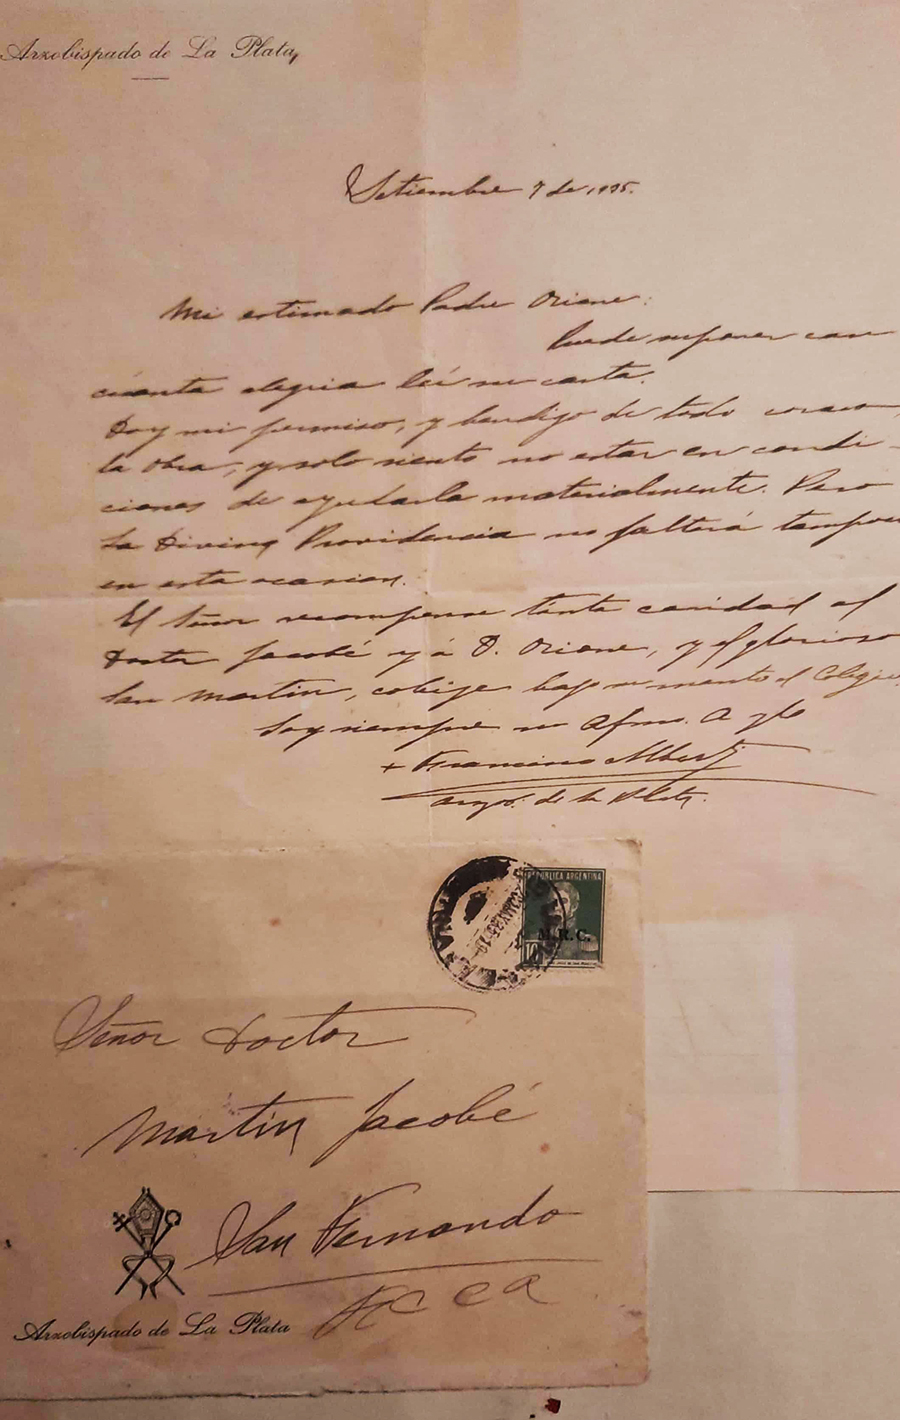 Arzobispado de La Plata
Setiembre 7 de 1935.
Mi estimado Padre Orione:
Puede suponer con
cuánta alegria leí su carta.
Doy mi permiso, y bendigo de todo corazon,
la obra, y solo siento no estar en condi-
ciones de ayudarla materialmente. Pero
La Divina Providencia no faltará tampoco
en esta ocasion.
El Señor recompense tanta caridad al
Doctor Jacobé y á D. Orione, y el glorioso
San Martin, cobije bajo su manto el Colegio.
Soy siempre su Afmo.
+ Francisco Alberti
Arzo. de La Plata.
REPUBLICA ARGENTINA
M.R.C.
10
Señor Doctor
Martin Jacobé
San Fernando
FCCA
Arzobispado de La Plata